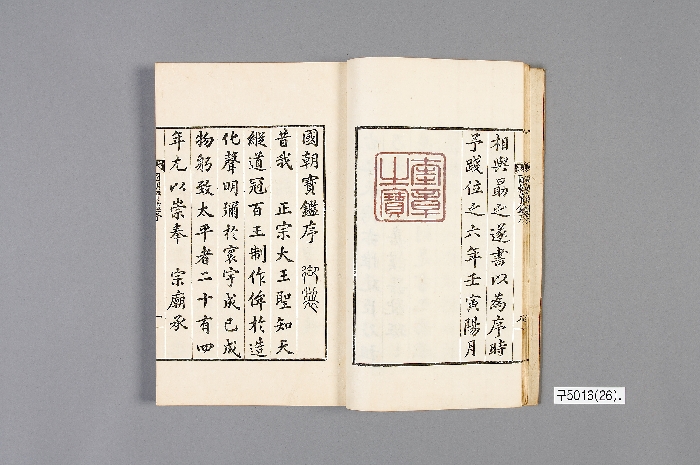 相與勗之遂書以為序時
予踐位之六年壬寅陽月
奎章
之寶
國朝寶鑑序 御製
昔我 正宗大王聖知天
縱道冠百王制作侔於造
化聲明彌於寰宇成已成
物躬致太平者二十有四
年尤以崇奉 宗廟承
구5016(26).